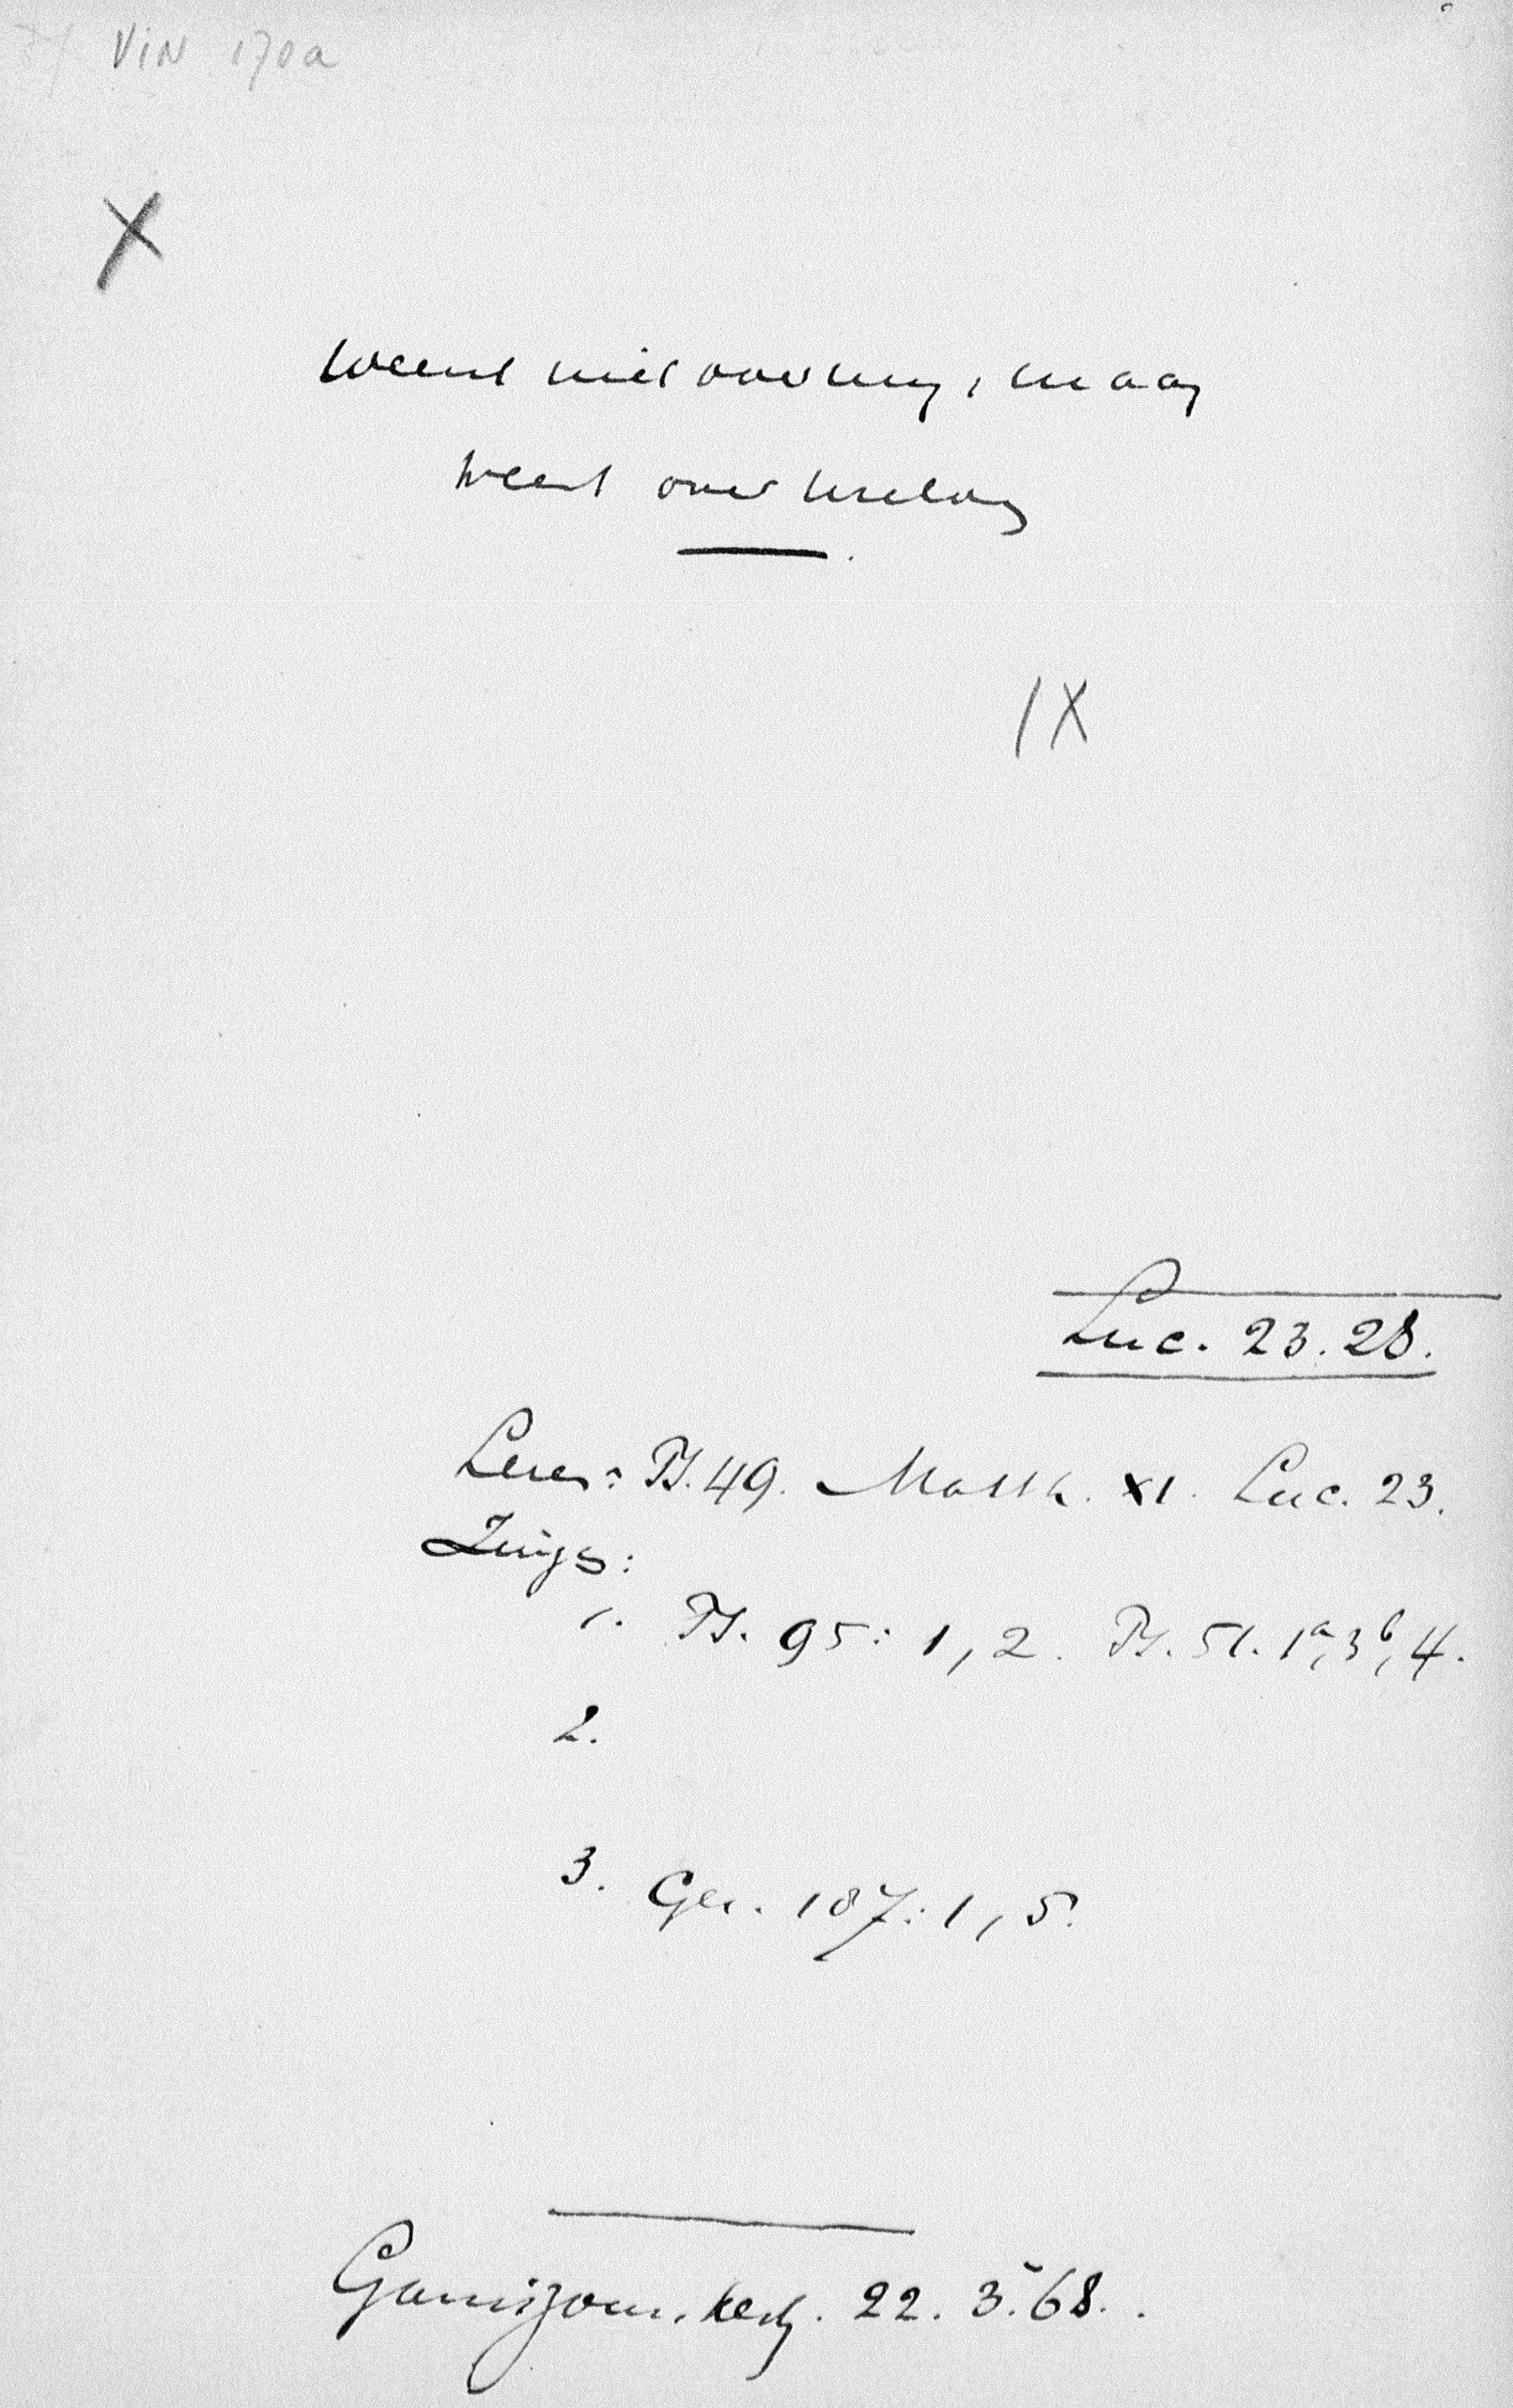 VIN 170a
X
Weent niet over mij, maar
weent over uzelve
IX
Luc. 23. 28.
Lezen: Ps. 49. Matth. XI. Luc. 23.
Zingen:
1. Ps. 95: 1, 2. Ps. 51. 1a, 3b, 4.
2.
3. Gez. 187: 1, 5.
Garnizoens kerk. 22. 3. 68.